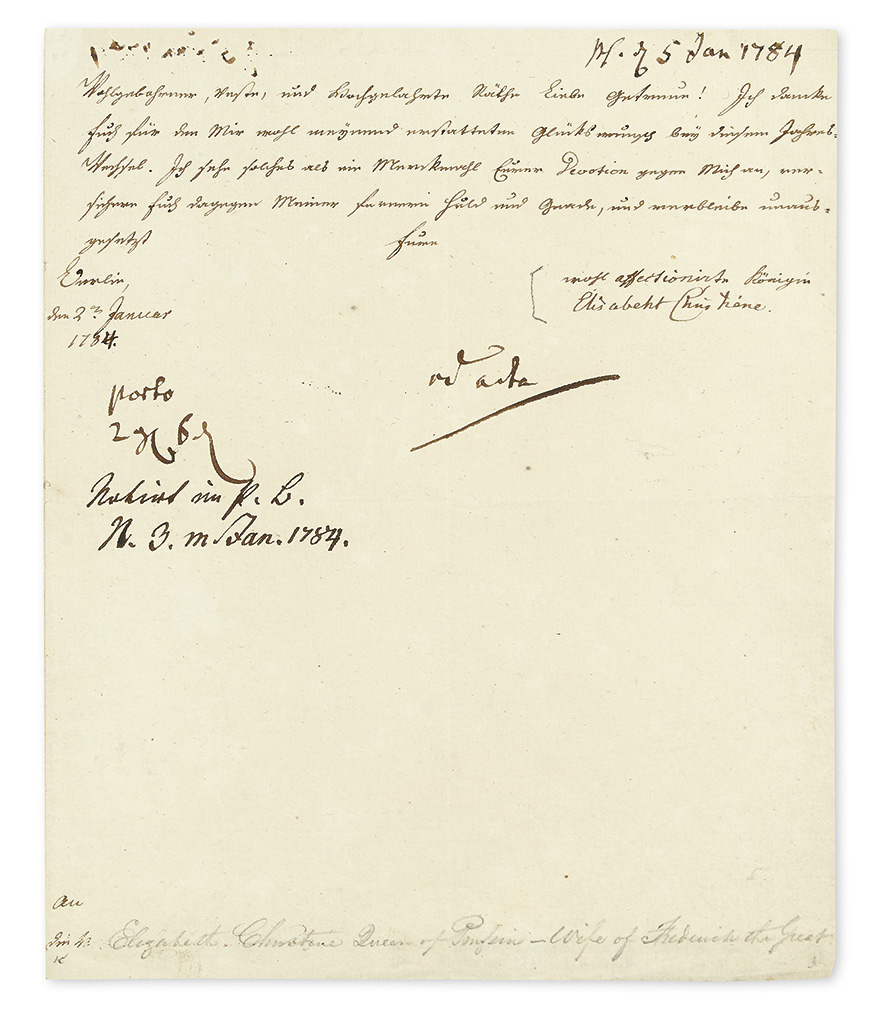 5 Jan 1784
Wohlgebohrner, Veste, und Hochgelahrte Räthe Liebe Getreue! Ich dancke
Euch für den Mir wohl meynend erstatteten Glückswunsch bey diesem Jahres-
Wechsel. Ich sehe solches als ein Merckmahl Eurer Devotion gegen Mich an, ver-
sichere Euch dagegen Meiner fernern Huld und Gnade, und verbleibe unaus-
gesetzt Eure
Berlin,
den 2ten Januar
1784.
wohl affectionirte Königin
Elisabeht Christiene.
ad acta
porto
2 g 6
Notirt im P. B.
N. 3. m Jan. 1784.
An
Elizabeth Christine Queen of Prussia – Wife of Frederick the Great